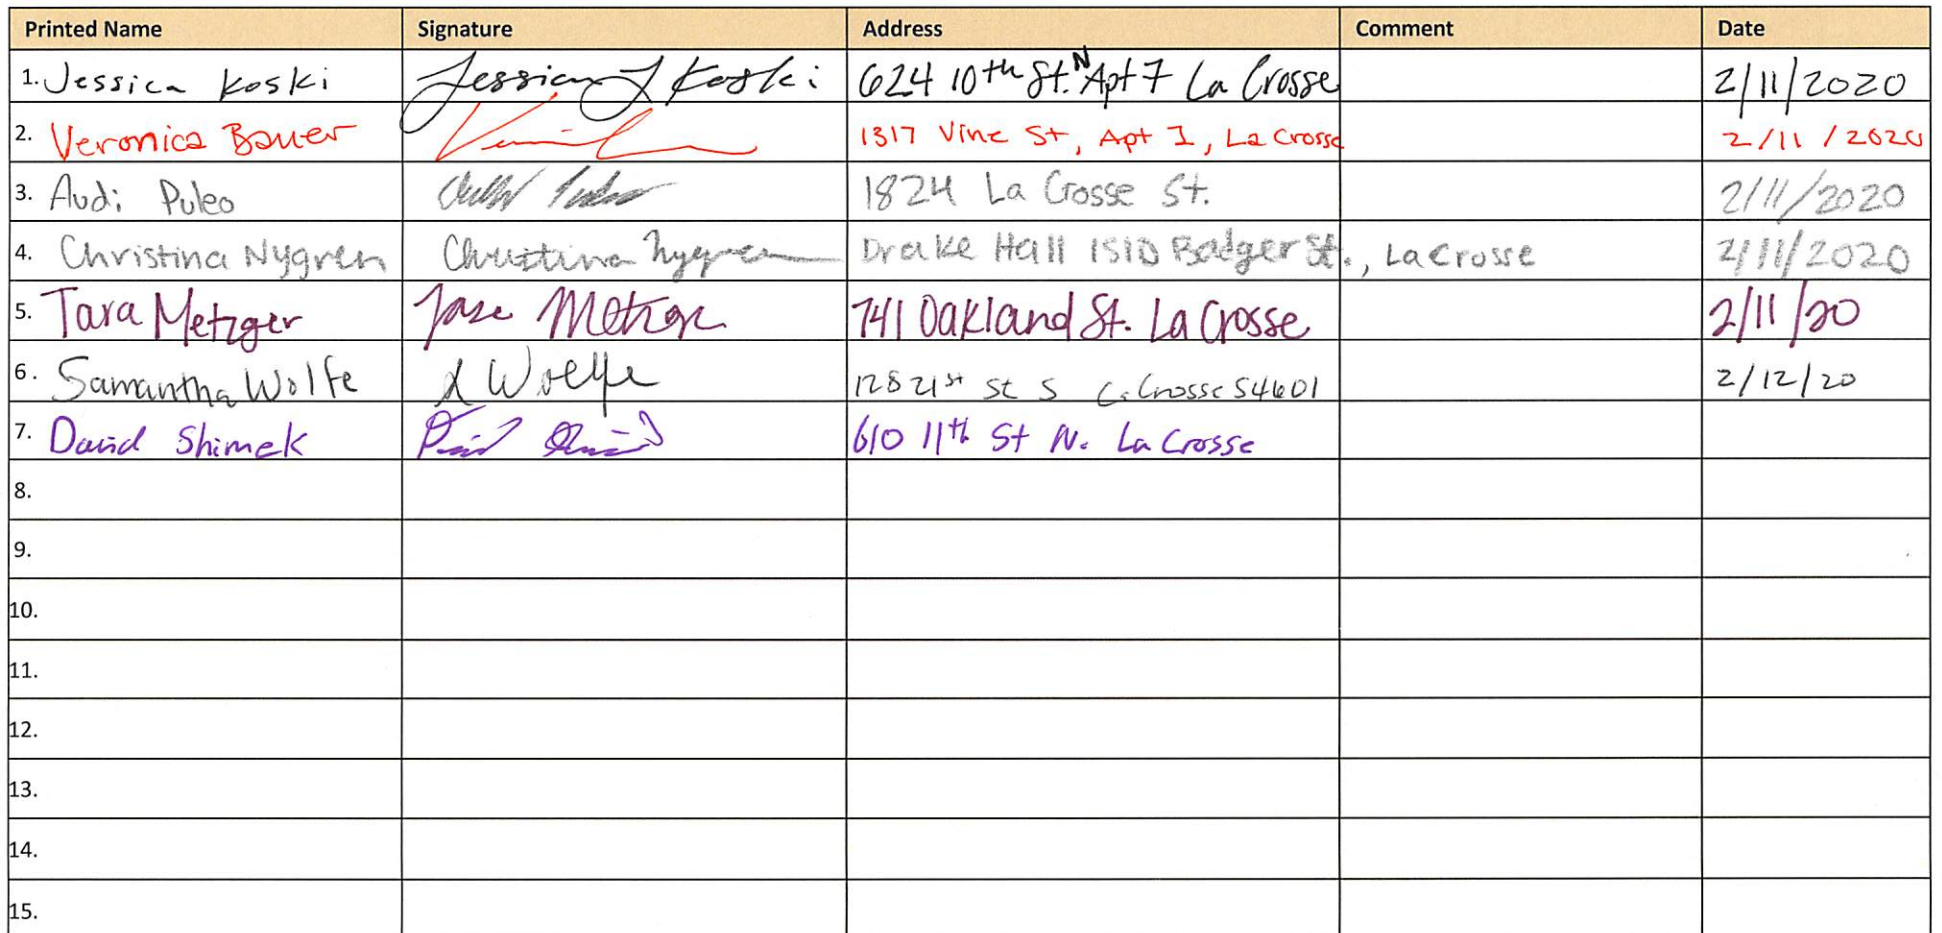 Printed Name Signature Address Comment Date
1. Jessica Koski Jessica J Koski 624 10th St. N Apt 7 La Crosse 2/11/2020
2. Veronica Bauer 1317 Vine St, Apt 1, La Crosse 2/11/2020
3. Audi Puleo 1824 La Crosse St. 2/11/2020
4. Christina Nygren Christina Nygren Drake Hall 1510 Badger St., La Crosse 2/11/2020
5. Tara Metzger Metzger 741 Oakland St. La Crosse 2/11/20
6. Samantha Wolfe Wolfe 128 21st St S La Crosse 54601 2/12/20
7. David Shimek 610 11th St N. La Crosse
8.
9.
10.
11.
12.
13.
14.
15.